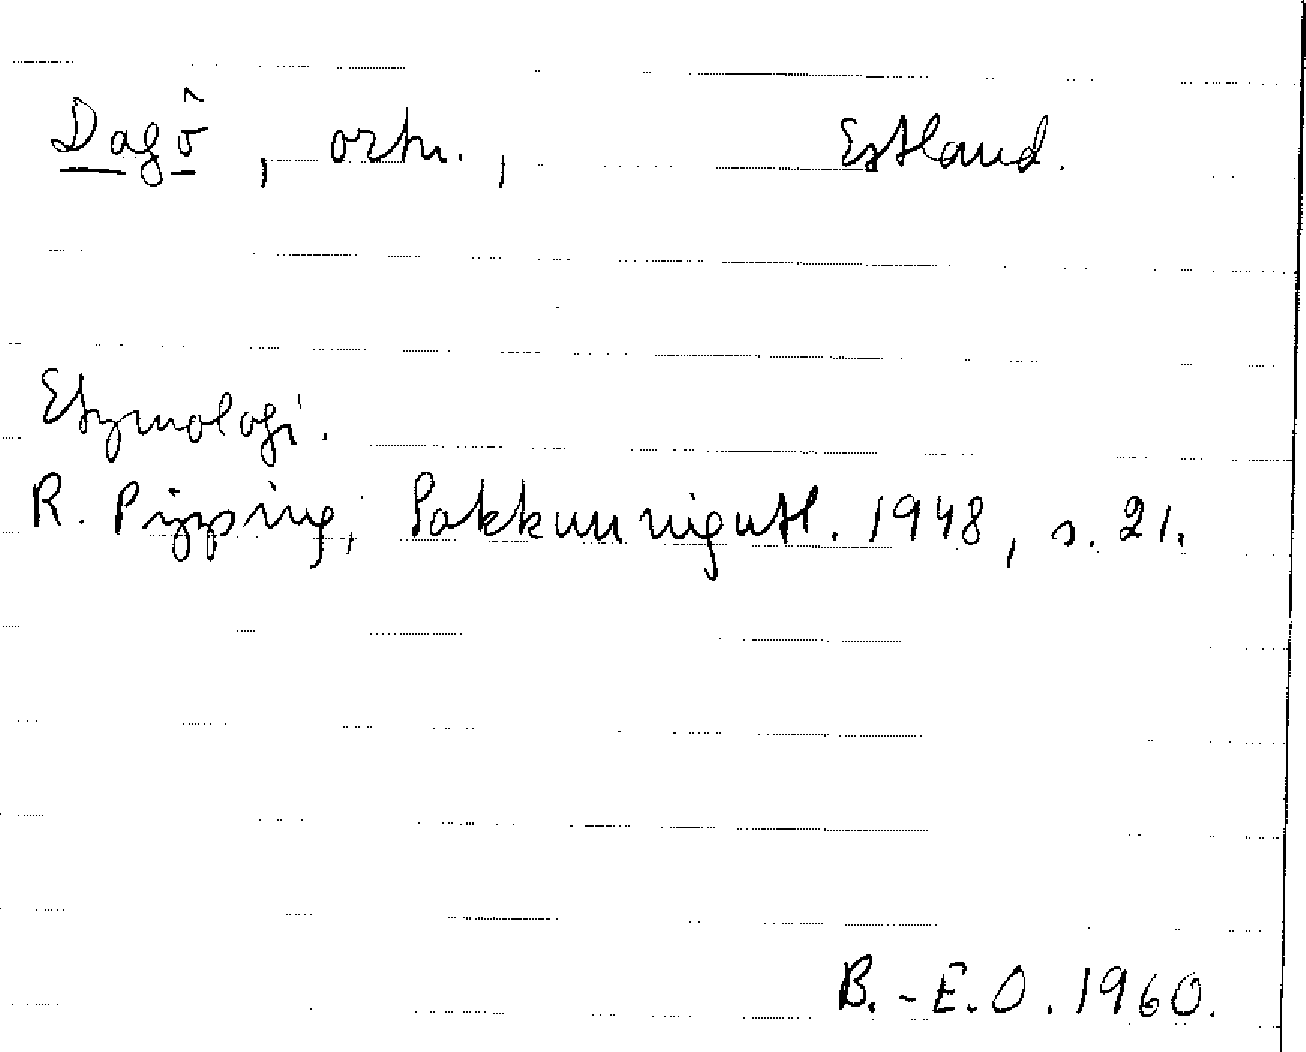 Dagö, ortn., Estland.
Etymologi.
R. Pipping, Sakkunnigutl. 1948, s. 21.
B.-E.O. 1960.